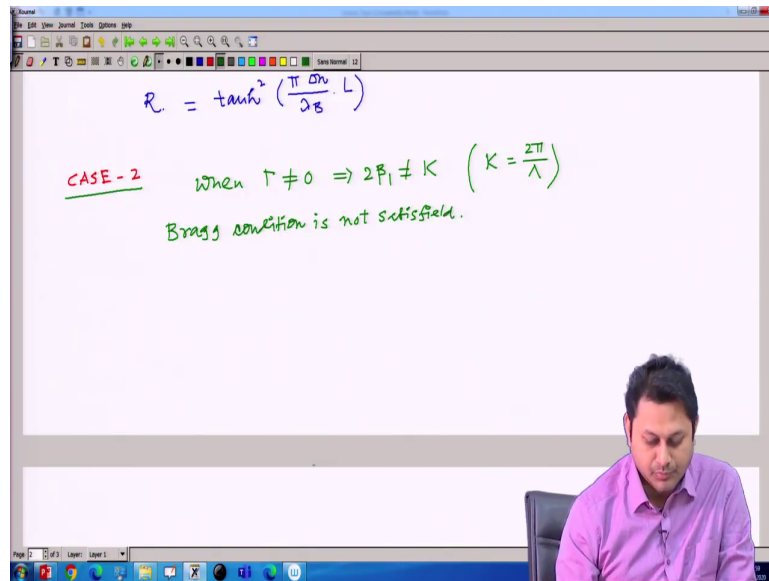 Xournal
File Edit View Journal Tools Options Help
Sans Normal 12
R. = tanh² (π Δn / λB . L)
CASE-2 When Γ ≠ 0 ⇒ 2β₁ ≠ K (K = 2π/Λ)
Bragg condition is not satisfield.
Page 2 of 3 Layer: Layer 1